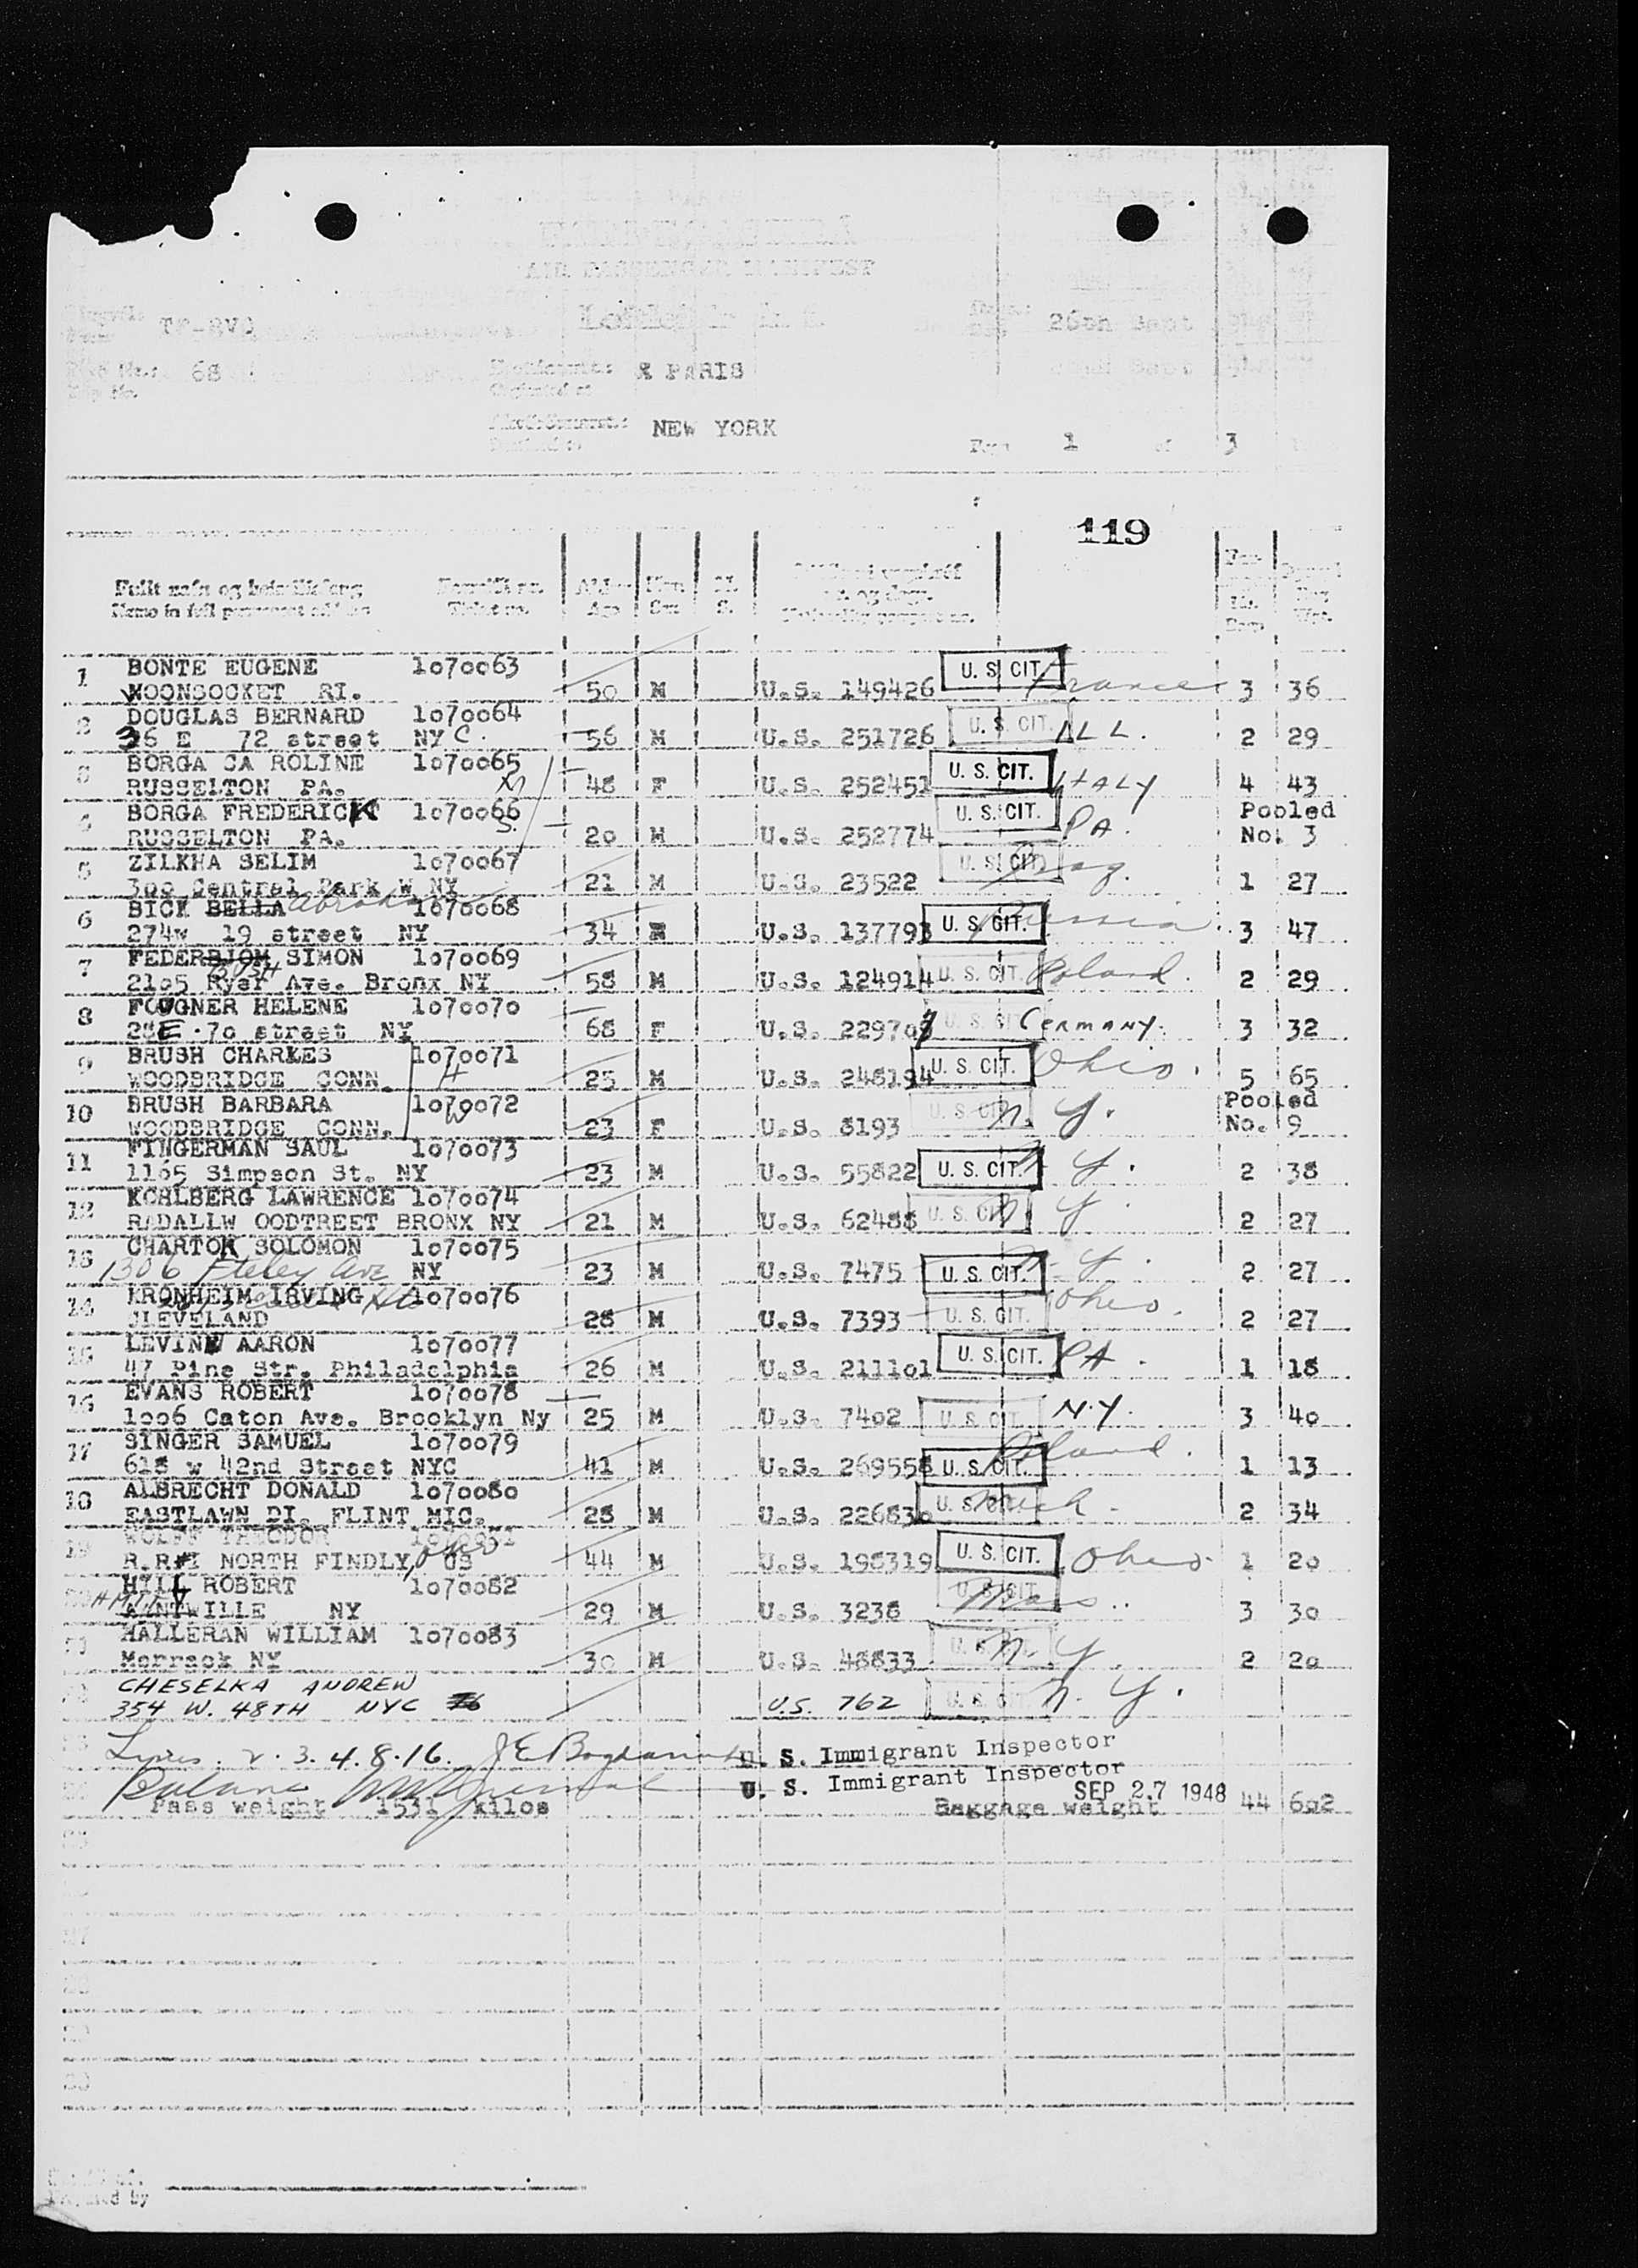 AIR PASSENGER MANIFEST
68
PARIS
NEW YORK
1 of 3
119
Fullt nafn og heimilisfang
Name in full permanent address
Ticket no.
Age
1 BONTE EUGENE 1070063
WOONSOCKET RI. 50 M U.S. 149426 U.S. CIT. France 3 36
2 DOUGLAS BERNARD 1070064
36 E 72 street NYC. 56 M U.S. 251726 U.S. CIT. ILL. 2 29
3 BORGA CA ROLINE 1070065
RUSSELTON PA. M 48 F U.S. 252451 U.S. CIT. ITALY 4 43
4 BORGA FREDERICK 1070066 Pooled
RUSSELTON PA. S. 20 M U.S. 252774 U.S. CIT. PA. No. 3
5 ZILKHA SELIM 1070067
300 Central Park W NY 21 M U.S. 23522 U.S. CIT. Iraq. 1 27
6 BICK BELLA Abraham 1070068
274w 19 street NY 34 M U.S. 137793 U.S. CIT. Russia 3 47
7 FEDERBJOM BUSH SIMON 1070069
2105 Ryer Ave. Bronx NY 58 M U.S. 124914 U.S. CIT. Poland. 2 29
8 FOUGNER HELENE 1070070
28E. 70 street NY 68 F U.S. 229707 U.S. CIT. GERMANY. 3 32
9 BRUSH CHARLES 1070071
WOODBRIDGE CONN. H 25 M U.S. 248194 U.S. CIT. Ohio. 5 65
10 BRUSH BARBARA 1070072 Pooled
WOODBRIDGE CONN. W 23 F U.S. 8193 U.S. CIT. N.Y. No. 9
11 FINGERMAN SAUL 1070073
1165 Simpson St. NY 23 M U.S. 55822 U.S. CIT. N.Y. 2 38
12 KOHLBERG LAWRENCE 1070074
RADALLW OODTREET BRONX NY 21 M U.S. 62488 U.S. CIT. N.Y. 2 27
13 CHARTOK SOLOMON 1070075
1306 Fteley Ave NY 23 M U.S. 7475 U.S. CIT. N.Y. 2 27
14 KRONHEIM IRVING 1070076
CLEVELAND 28 M U.S. 7393 U.S. CIT. Ohio. 2 27
15 LEVINE AARON 1070077
47 Pine Str. Philadelphia 26 M U.S. 211101 U.S. CIT. PA. 1 18
16 EVANS ROBERT 1070078
1006 Caton Ave. Brooklyn Ny 25 M U.S. 7402 U.S. CIT. N.Y. 3 40
17 SINGER SAMUEL 1070079
618 w 42nd Street NYC 41 M U.S. 269558 U.S. CIT. Poland. 1 13
18 ALBRECHT DONALD 1070080
EASTLAWN DI. FLINT MIC. 28 M U.S. 226830 U.S. CIT. Mich. 2 34
19 WOLFF THEODOR 1070081
R.R#1 NORTH FINDLY, Ohio US 44 M U.S. 198319 U.S. CIT. Ohio. 1 20
20 HILL ROBERT 1070082
NY 29 M U.S. 3238 U.S. CIT. Mass. 3 30
21 HALLERAN WILLIAM 1070083
Merrack NY 30 M U.S. 48833 U.S. CIT. N.Y. 2 20
CHESELKA ANDREW
354 W. 48TH NYC U.S. 762 U.S. CIT. N.Y.
Lines. 2. 3. 4. 8. 16. U. S. Immigrant Inspector
Balance U. S. Immigrant Inspector
SEP 27 1948
Pass weight 1531 kilos Baggage weight 44 602